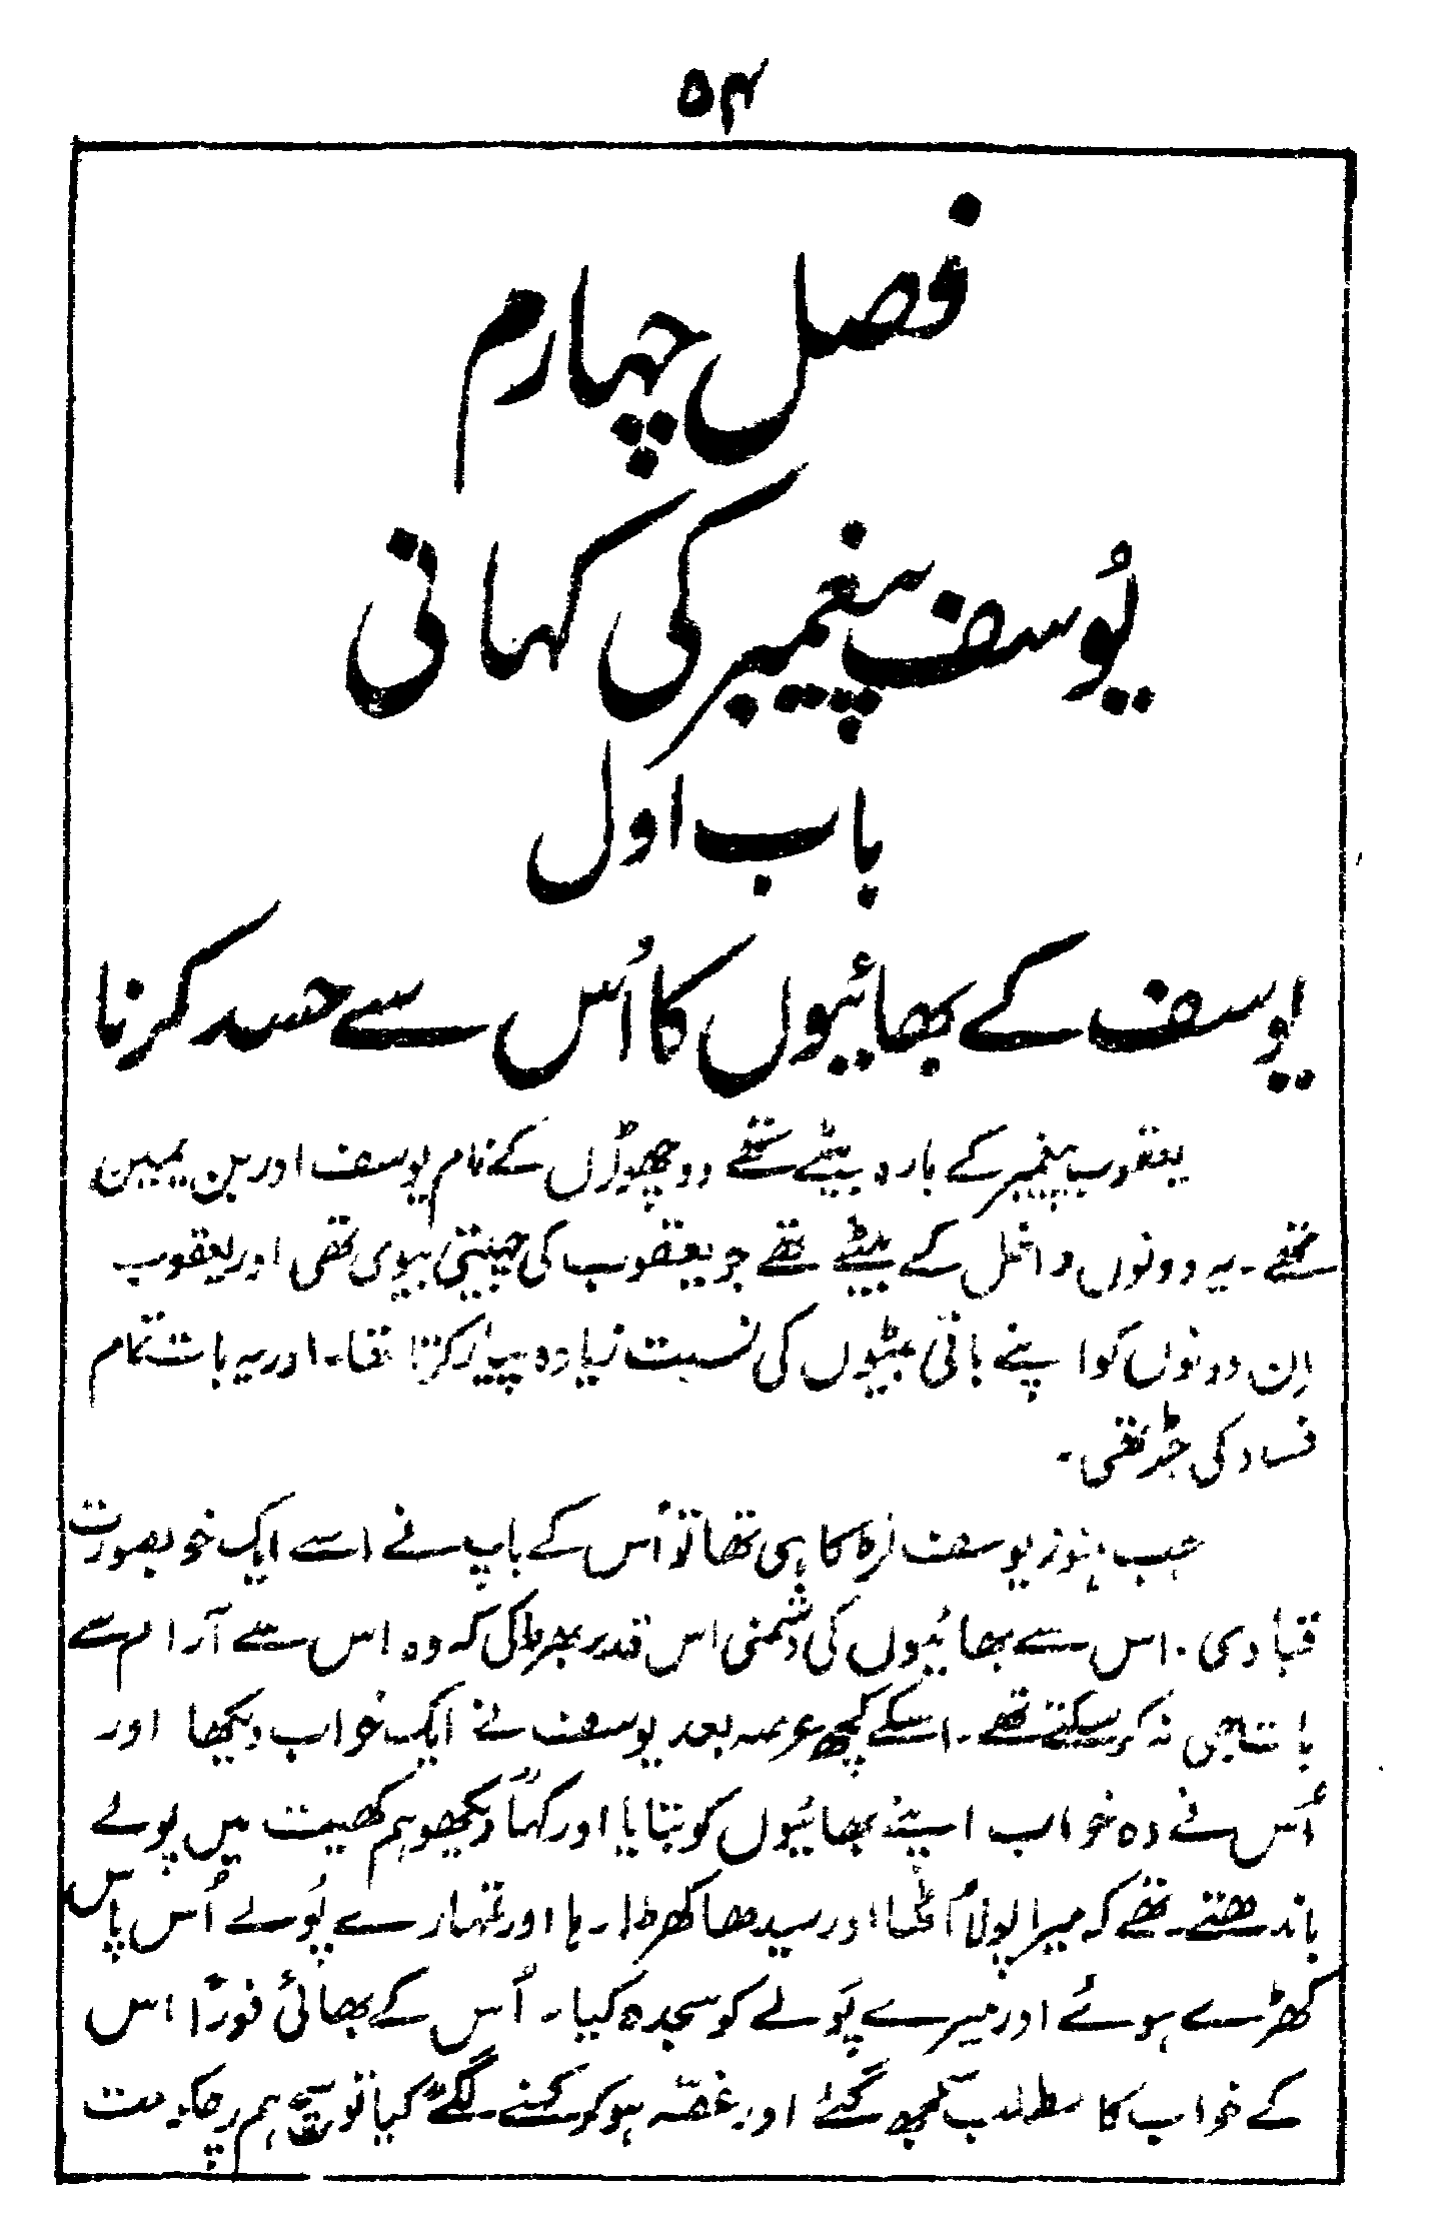 ۵۴
فصل چہارم
یُوسف پیغمبر کی کہانی
باب اول
یوسف کے بھائیوں کا اُس سے حسد کرنا
یعقوب پیغمبر کے بارہ بیٹے تھے دو چھوٹوں کے نام یوسف اور بن یمین
تھے۔ یہ دونوں راخل کے بیٹے تھے جو یعقوب کی چہیتی بیوی تھی اور یعقوب
اِن دونوں کو اپنے باقی بیٹوں کی نسبت زیادہ پیار کرتا تھا۔ اور یہ بات تمام
فساد کی جڑ تھی۔
جب ہنوز یوسف لڑکا ہی تھا تو اُس کے باپ نے اسے ایک خوبصورت
قبا دی۔ اس سے بھائیوں کی دشمنی اس قدر بھڑکی کہ وہ اس سے آرام سے
بات بھی نہ کر سکتے تھے۔ اسکے کچھ عرصہ بعد یوسف نے ایک خواب دیکھا اور
اُس نے وہ خواب اپنے بھائیوں کو بتایا اور کہا "دیکھو ہم کھیت میں پولے
باندھتے تھے کہ میرا پولا اُٹھا اور سیدھا کھڑا رہا اور تمہارے پُولے اُس پاس
کھڑے ہوئے اور میرے پُولے کو سجدہ کیا۔ اُس کے بھائی فوراً اس
کے خواب کا مطلب سمجھ گئے اور غصّہ ہو کر کہنے لگے "کیا تو سچ مچ ہم پر حکومت